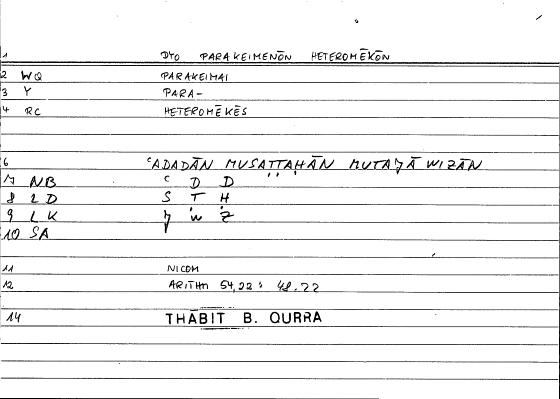 1 DYO PARAKEIMENŌN HETEROMĒKŌN
2 WQ PARAKEIMAI
3 Y PARA-
4 RC HETEROMĒKĒS
6 ʿADADĀN MUSAṬṬAḤĀN MUTAǦĀWIZĀN
7 NB ʿ D D
8 2D S Ṭ Ḥ
9 LK Ǧ W Z
10 SA
11 NICOM
12 ARITHM 54,22 : 48.22
14 THĀBIT B. QURRA